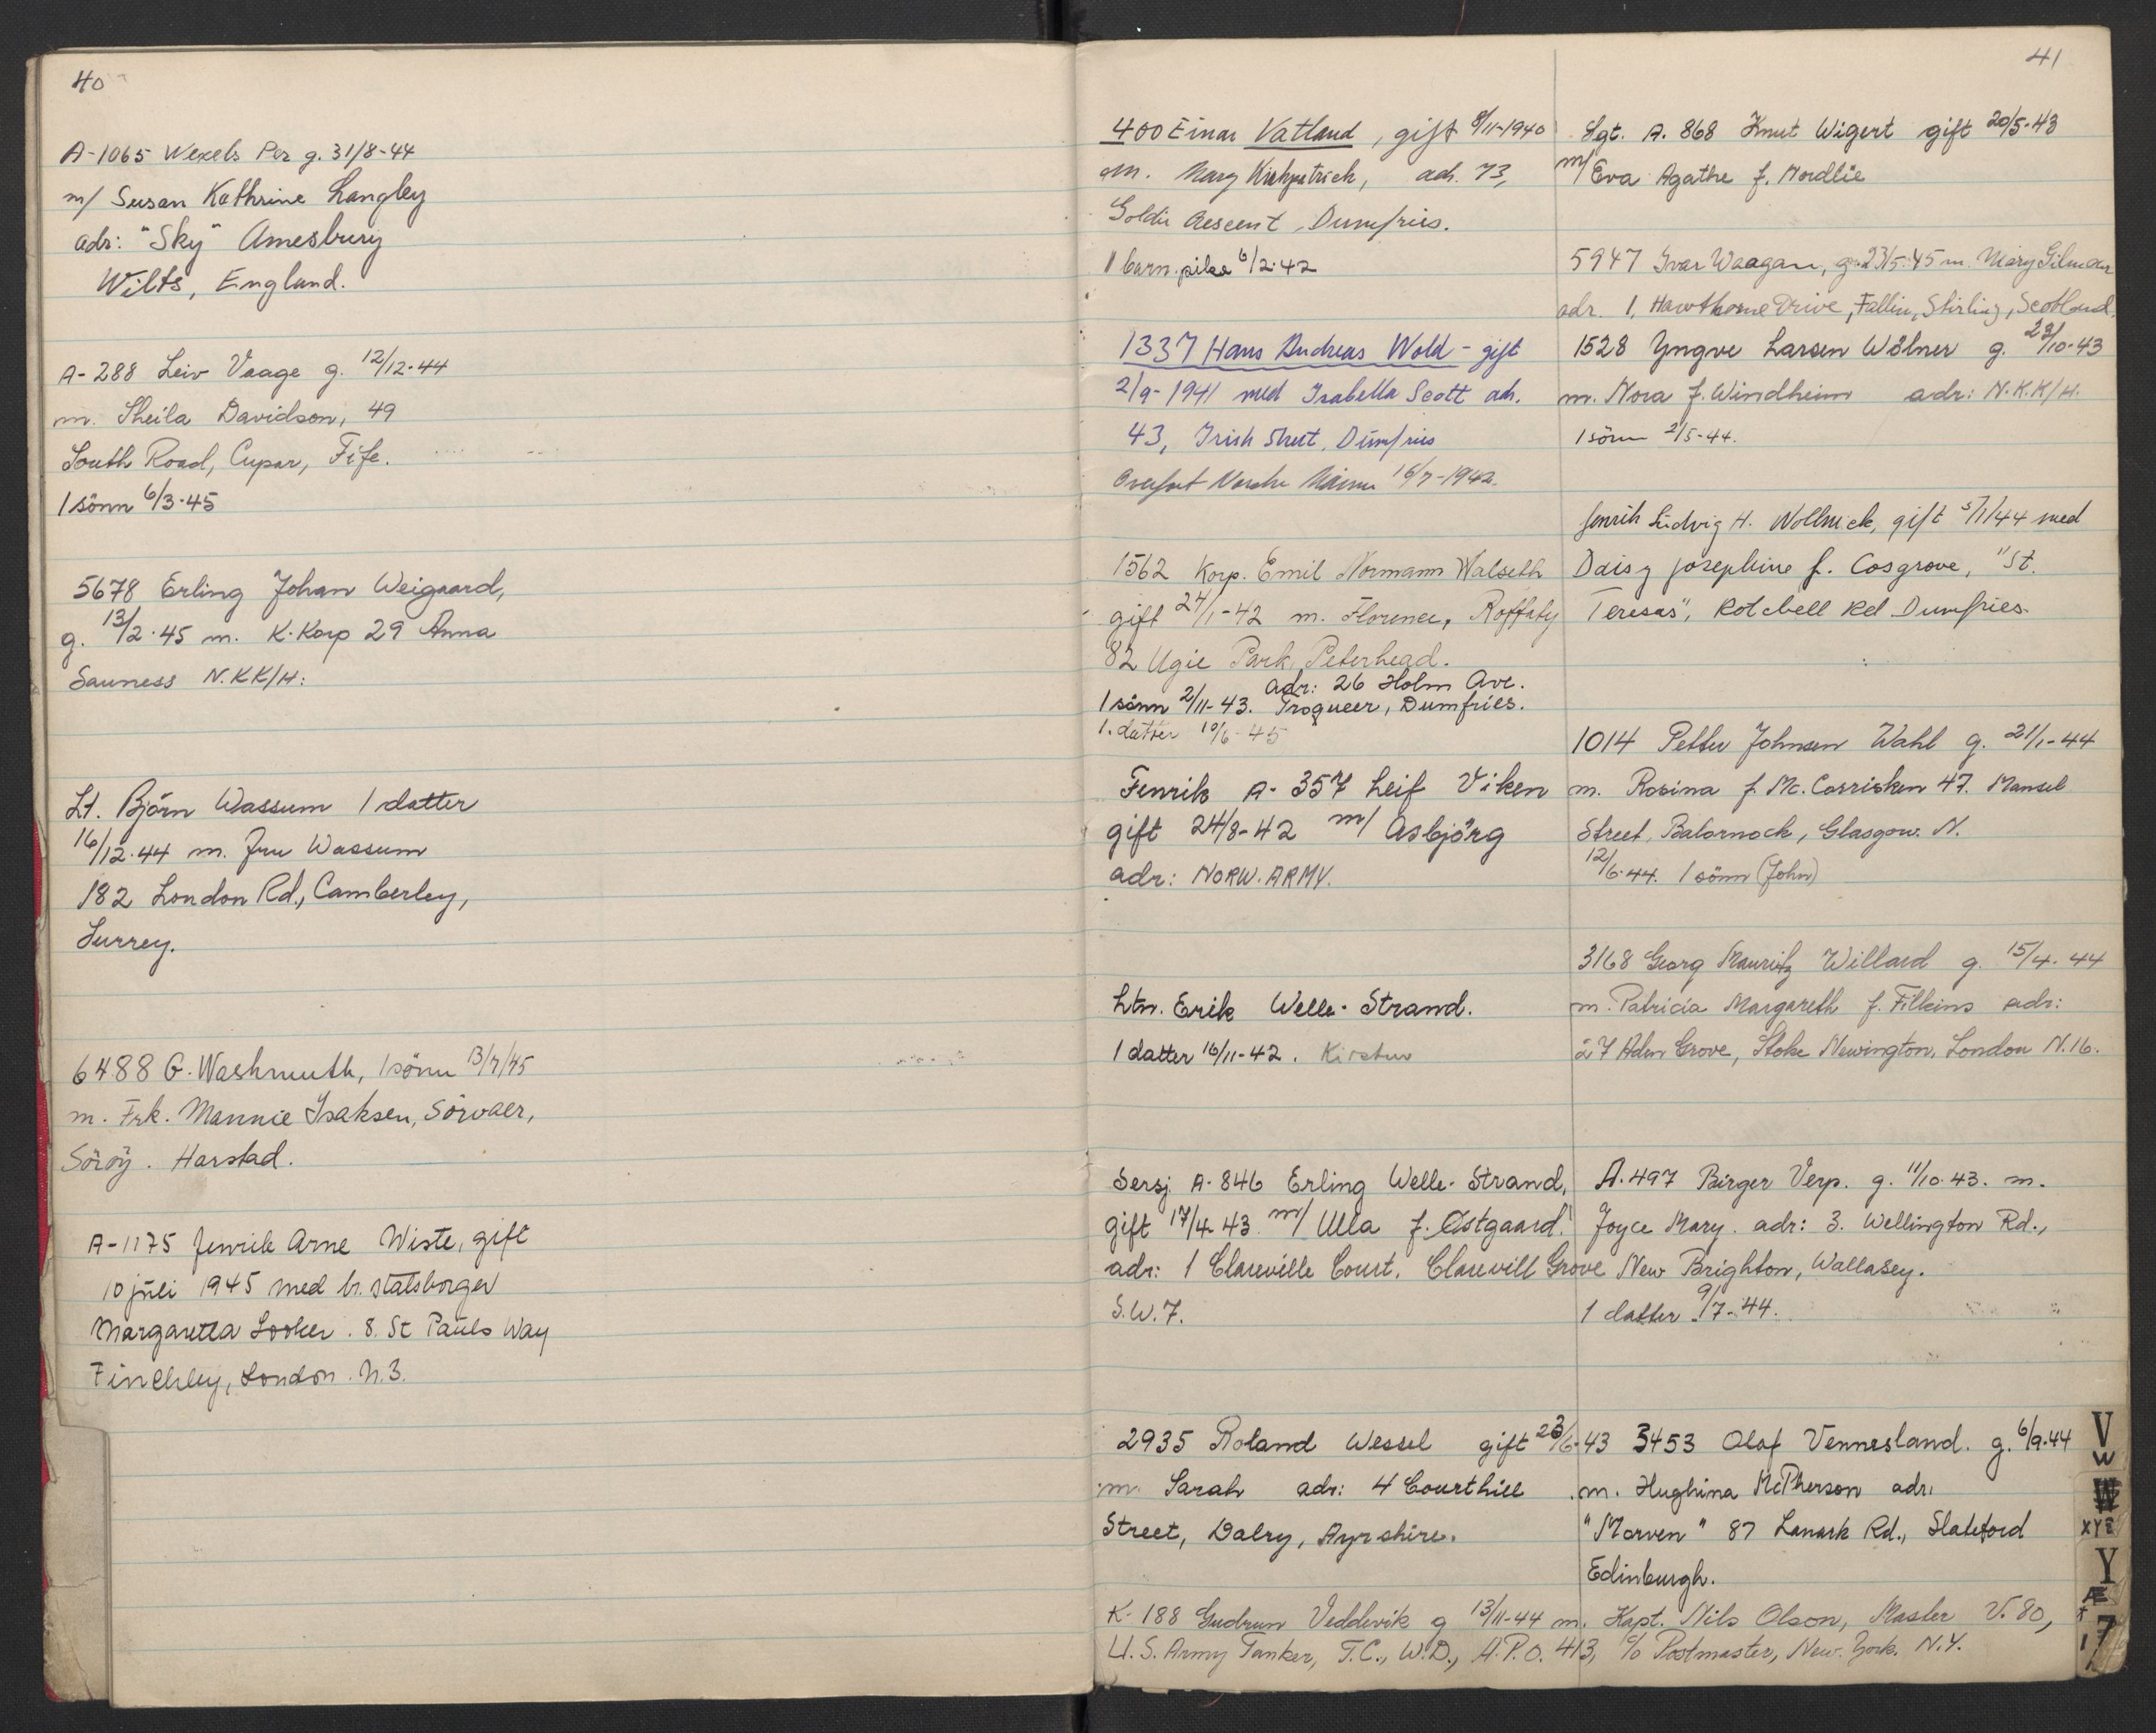 40
A-1065 Wexels Per g. 31/8-44
m/ Susan Kathrine Langley
adr: "Sky" Amesbury
Wilts, England.
A-288 Leiv Vaage g. 12/12-44
m. Sheila Davidson, 49
South Road, Cupar, Fife.
1 sönn 6/3-45
5678 Erling Johan Weigaard,
g. 13/2-45 m. K.Korp 29 Anna
Sauness N.KK/H:
Lt. Björn Wassum 1 datter
16/12-44 m. Fru Wassum
182 London Rd., Camberley,
Surrey.
6488 G. Washmuth, 1 sönn 13/7/45
m. Frk. Mannie Isaksen, Sörvaer,
Söröy. Harstad.
A-1175 Fenrik Arne Wiste, gift
10 juli 1945 med br. statsborger
Margaretta Looker. 8. St Pauls Way
Finchley, London. N.3.
41
400 Einar Vatland, gift 8/11-1940
m. Mary Kirkpatrick, adr. 73,
Goldie Crescent, Dumfries.
1 barn. pike 6/2-42
1337 Hans Andreas Wold - gift
2/9-1941 med Isabella Scott adr.
43, Irish Street, Dumfries
Overført Norske Marine 16/7-1942.
1562 Korp. Emil Normann Walseth
gift 24/1-42 m. Florence, Roffaty
82 Ugie Park, Peterhead.
adr: 26 Holm Ave.
1 sönn 2/11-43. Troqueer, Dumfries.
1. datter 10/6-45
Fenrik A-357 Leif Viken
gift 24/8-42 m/ Asbjörg
adr: NORW. ARMY.
Ltn. Erik Welle-Strand.
1 datter 16/11-42. Kirsten
Sersj A-846 Erling Welle-Strand,
gift 17/4-43 m/ Ulla f. Østgaard.
adr: 1 Clareville Court, Clarevill Grove
S.W.7.
2935 Roland Wessel gift 23/6-43
m. Sarah adr: 4 Courthill
Street, Dalry, Ayrshire.
Sgt. A. 868 Knut Wigert gift 20/5-43
m/ Eva Agathe f. Nordlie
5947 Ivar Waagan, g. 23/5-45 m. Mary Gilmour
adr. 1, Hawthorne Drive, Fallin, Stirling, Scotland.
1528 Yngve Larsen Wölner g. 23/10-43
m. Nora f. Windheim adr: N.K.K/H.
1 sönn 2/5-44.
Fenrik Ludvig H. Wollnick, gift 5/1/44 med
Daisy Josephine f. Cosgrove, "St.
Teresas", Rotchell Rd. Dumfries.
1014 Petter Johnsen Wahl g. 21/1-44
m. Rosina f. Mc. Corrisken 47. Mansel
Street, Balornock, Glasgow. N.
12/6-44. 1 sönn (John)
3168 Georg Mauritz Willard g. 15/4-44
m. Patricia Margareth f. Filkins adr:
27 Aden Grove, Stoke Newington, London N.16.
A.497 Birger Verp. g. 11/10-43. m.
Joyce Mary. adr: 3. Wellington Rd.,
New Brighton, Wallasey.
1 datter 9/7-44.
3453 Olaf Vennesland. g. 6/9-44
m. Hughina McPherson adr.
"Morven" 87 Lanark Rd., Slateford
Edinburgh.
K-188 Gudrun Veddevik g 13/11-44 m. Kapt. Nils Olson, Master V.80,
U.S. Army Tanker, T.C., W.D., A.P.O. 413, c/o Postmaster, New York. N.Y.
V
W
W
XYZ
Y
Æ